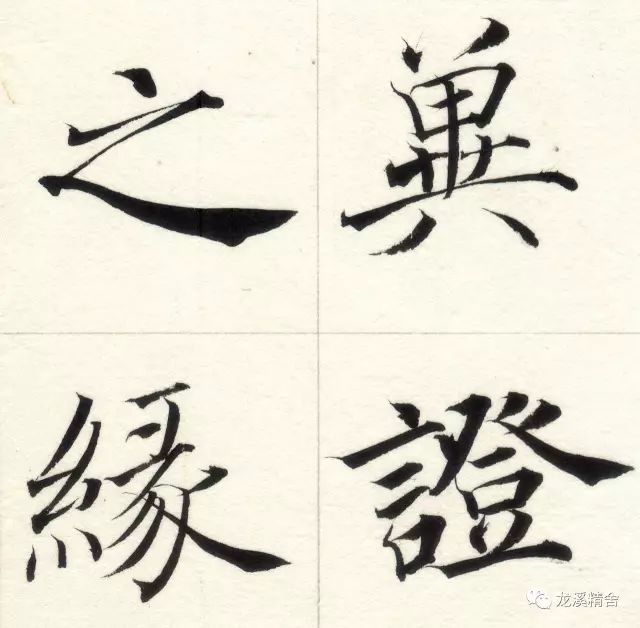 冀證
之緣
龙溪精舍